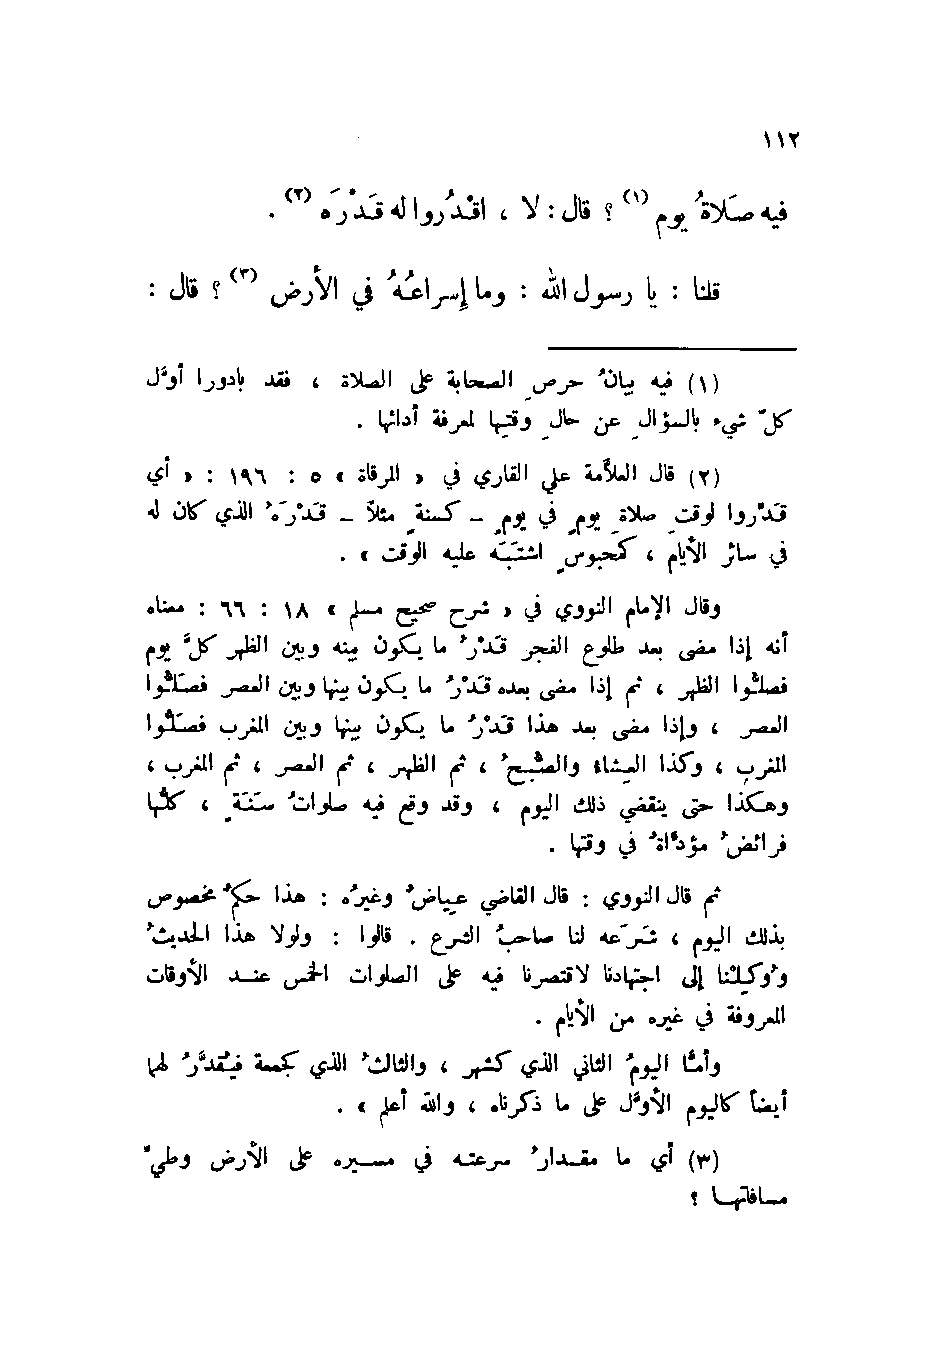 ١١٢
فيه صَلاةُ يوم (١) ؟ قال : لا ، اقْدُروا له قَدْرَه (٢) .
قلنا : يا رسول الله : وما إسراعُهُ في الأرض (٣) ؟ قال :
(١) فيه بيانُ حرصِ الصحابة على الصلاة ، فقد بادورا أوَّل
كلّ شيء بالسؤالِ عن حالِ وقتِها لمعرفة أدائها .
(٢) قال العلاّمة علي القاري في « المرقاة » ٥ : ١٩٦ : « أي
قَدْروا لوقتِ صلاةِ يومٍ في يومٍ – كسنةٍ مثلاً – قَدْرَهُ الذي كان له
في سائر الأيام ، كمحبوسٍ اشتَبَه عليه الوقت » .
وقال الإمام النووي في « شرح صحيح مسلم » ١٨ : ٦٦ : معناه
أنه إذا مضى بعد طلوع الفجر قَدْرُ ما يكون بينه وبين الظهر كلَّ يوم
فصلُّوا الظهر ، ثم إذا مضى بعده قَدْرُ ما يكون بينها وبين العصر فصَلُّوا
العصر ، وإذا مضى بعد هذا قَدْرُ ما يكون بينها وبين المغرب فصَلُّوا
المغرب ، وكذا العِشاء والصُّبحُ ، ثم الظهر ، ثم العصر ، ثم المغرب ،
وهكذا حتى ينقضي ذلك اليوم ، وقد وقع فيه صلواتُ سَنَةٍ ، كلُّها
فرائضُ مؤدَّاةُ في وقتها .
ثم قال النووي : قال القاضي عياضُ وغيرُه : هذا حكمُ مخصوص
بذلك اليوم ، شَرَعه لنا صاحبُ الشرع . قالوا : ولولا هذا الحديثُ
ووُكِلْنا إلى اجتهادنا لاقتصرنا فيه على الصلوات الخمس عند الأوقات
المعروفة في غيره من الأيام .
وأمَّا اليومُ الثاني الذي كشهر ، والثالثُ الذي كجمعة فيُقدَّرُ لهما
أيضاً كاليوم الأوَّل على ما ذكرناه ، والله أعلم » .
(٣) أي ما مقدارُ سرعته في مسيره على الأرض وطيّ
مسافاتها ؟